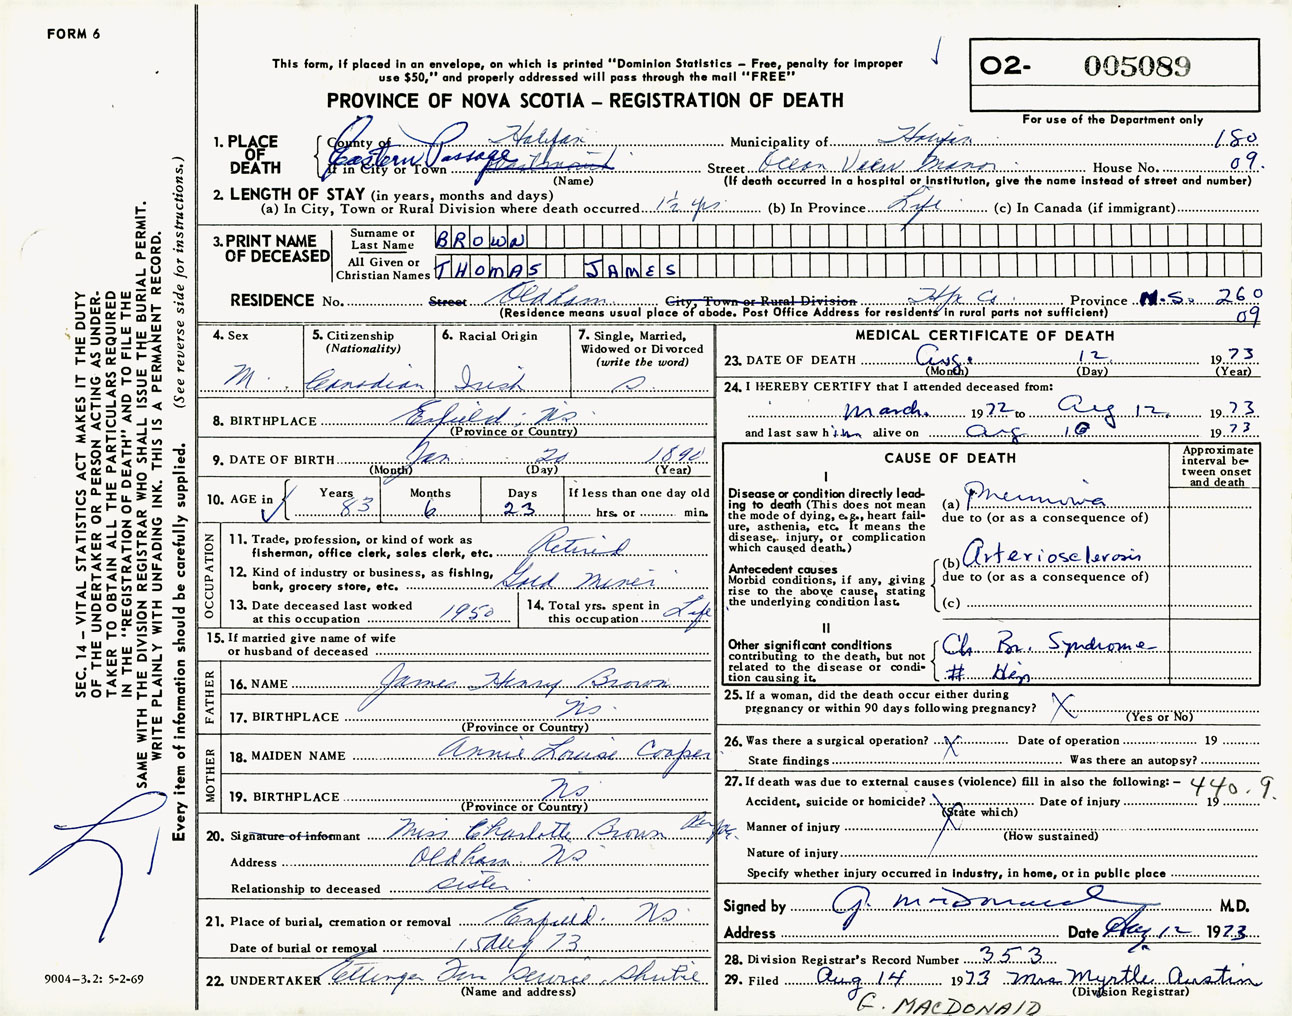 FORM 6
This form, if placed in an envelope, on which is printed "Dominion Statistics – Free, penalty for improper
use $50," and properly addressed will pass through the mail "FREE"
PROVINCE OF NOVA SCOTIA – REGISTRATION OF DEATH
O2- 005089
For use of the Department only
1. PLACE OF DEATH
County of Halifax Municipality of Halifax 180
If in City or Town Eastern Passage Street Ocean View Manor House No. 09.
(Name) (If death occurred in a hospital or institution, give the name instead of street and number)
2. LENGTH OF STAY (in years, months and days)
(a) In City, Town or Rural Division where death occurred 1½ yrs (b) In Province Life (c) In Canada (if immigrant)
3. PRINT NAME OF DECEASED
Surname or Last Name BROWN
All Given or Christian Names THOMAS JAMES
RESIDENCE No. Street Oldham City, Town or Rural Division Hfx Co. Province N.S. 260
(Residence means usual place of abode. Post Office Address for residents in rural parts not sufficient) 09
4. Sex M.
5. Citizenship (Nationality) Canadian
6. Racial Origin Irish
7. Single, Married, Widowed or Divorced (write the word) S
8. BIRTHPLACE Enfield. NS.
(Province or Country)
9. DATE OF BIRTH Jan 20 1890
(Month) (Day) (Year)
10. AGE in Years 83 Months 6 Days 23 If less than one day old hrs. or min.
OCCUPATION
11. Trade, profession, or kind of work as fisherman, office clerk, sales clerk, etc. Retired
12. Kind of industry or business, as fishing, bank, grocery store, etc. Gold Miner
13. Date deceased last worked at this occupation 1950
14. Total yrs. spent in this occupation Life
15. If married give name of wife or husband of deceased
FATHER
16. NAME James Henry Brown
17. BIRTHPLACE NS.
(Province or Country)
MOTHER
18. MAIDEN NAME Annie Louise Cooper
19. BIRTHPLACE NS
(Province or Country)
20. Signature of informant Miss Charlotte Brown
Address Oldham. NS
Relationship to deceased sister
21. Place of burial, cremation or removal Enfield. NS.
Date of burial or removal 15 Aug 73
22. UNDERTAKER Ettinger Fun Service Shubie
(Name and address)
MEDICAL CERTIFICATE OF DEATH
23. DATE OF DEATH Aug. 12 1973
(Month) (Day) (Year)
24. I HEREBY CERTIFY that I attended deceased from:
March. 1972 to Aug 12, 1973
and last saw him alive on Aug 10 1973
CAUSE OF DEATH
Approximate interval between onset and death
I
Disease or condition directly leading to death (This does not mean the mode of dying, e.g., heart failure, asthenia, etc. It means the disease, injury, or complication which caused death.)
(a) Pneumonia
due to (or as a consequence of)
Antecedent causes
Morbid conditions, if any, giving rise to the above cause, stating the underlying condition last.
(b) Arteriosclerosis
due to (or as a consequence of)
(c)
II
Other significant conditions contributing to the death, but not related to the disease or condition causing it.
Ch Br. Syndrome
# Hip
25. If a woman, did the death occur either during pregnancy or within 90 days following pregnancy? X
(Yes or No)
26. Was there a surgical operation? X Date of operation 19
State findings Was there an autopsy?
27. If death was due to external causes (violence) fill in also the following: – 440.9.
Accident, suicide or homicide? X Date of injury 19
(State which)
Manner of injury
(How sustained)
Nature of injury
Specify whether injury occurred in industry, in home, or in public place
Signed by G. McDonald M.D.
Address Date Aug 12 1973
28. Division Registrar's Record Number 353
29. Filed Aug 14 1973 Mrs Myrtle Austin
(Division Registrar)
G. MACDONALD
SEC. 14 – VITAL STATISTICS ACT MAKES IT THE DUTY
OF THE UNDERTAKER OR PERSON ACTING AS UNDER-
TAKER TO OBTAIN ALL THE PARTICULARS REQUIRED
IN THE "REGISTRATION OF DEATH" AND TO FILE THE
SAME WITH THE DIVISION REGISTRAR WHO SHALL ISSUE THE BURIAL PERMIT.
WRITE PLAINLY WITH UNFADING INK. THIS IS A PERMANENT RECORD.
Every item of information should be carefully supplied. (See reverse side for instructions.)
9004–3.2: 5-2-69